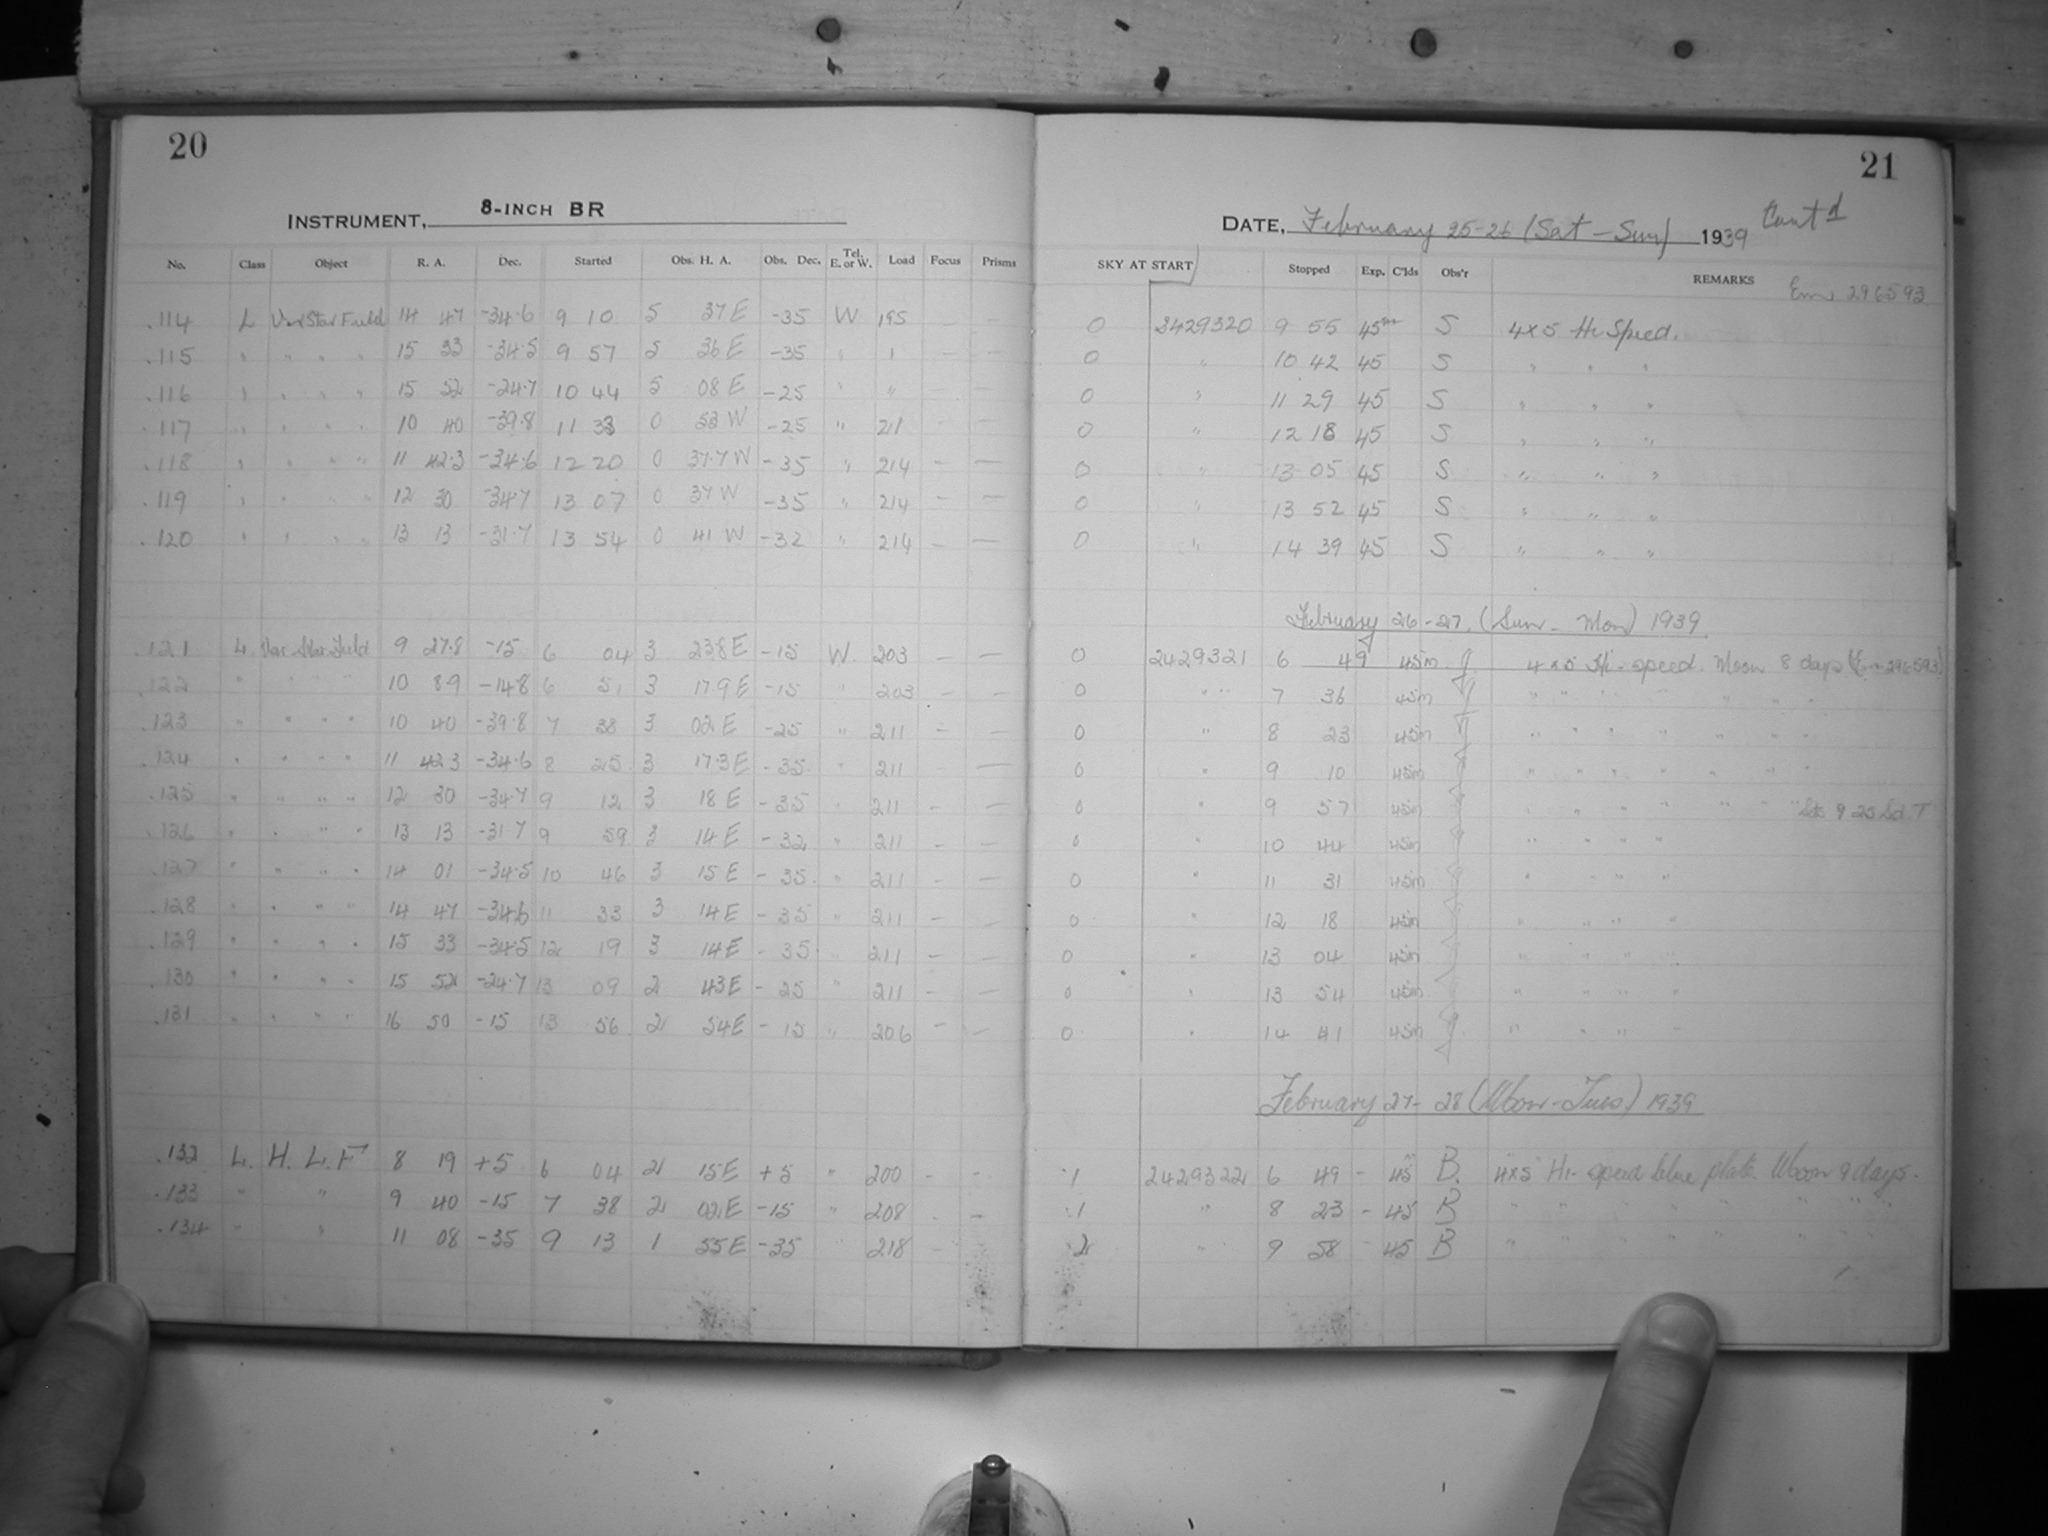 20
INSTRUMENT, 8-INCH BR
No. Class Object R. A. Dec. Started Obs. H. A. Obs. Dec. Tel. E. or W. Load Focus Prisms
.114 L Var Star Field 14 47 -34.6 9 10 5 37 E -35 W 195 — —
.115 " " " " 15 33 -34.5 9 57 5 36 E -35 " " — —
.116 " " " " 15 52 -24.7 10 44 5 08 E -25 " " — —
.117 " " " " 10 40 -39.8 11 33 0 53 W -25 " 211 — —
.118 " " " " 11 42.3 -34.6 12 20 0 37.7 W -35 " 214 — —
.119 " " " " 12 30 -34.7 13 07 0 37 W -35 " 214 — —
.120 " " " " 13 13 -31.7 13 54 0 41 W -32 " 214 — —
.121 L. Var. Star. Field 9 27.8 -15 6 04 3 23.8 E -15 W. 203 — —
.122 " " " " 10 89 -14.8 6 51 3 17.9 E -15 " 203 — —
.123 " " " " 10 40 -39.8 7 38 3 02 E -25 " 211 — —
.124 " " " " 11 42.3 -34.6 8 25 3 17.3 E -35 " 211 —
.125 " " " " 12 30 -34.7 9 12 3 18 E -35 " 211 — —
.126 " " " " 13 13 -31.7 9 59 3 14 E -32 " 211 — —
.127 " " " " 14 01 -34.5 10 46 3 15 E -35 " 211 — —
.128 " " " " 14 47 -34.6 11 33 3 14 E -35 " 211 — —
.129 " " " " 15 33 -34.5 12 19 3 14 E -35 " 211 — —
.130 " " " " 15 52 -24.7 13 09 2 43 E -25 " 211 — —
.131 " " " " 16 50 -15 13 56 2 54 E -15 " 206 — —
.132 L. H. L. F 8 19 +5 6 04 2 15 E +5 " 200 - -
.133 " " 9 40 -15 7 38 2 02 E -15 " 208 - -
.134 " " 11 08 -35 9 13 1 55 E -35 " 218 - -
21
DATE, February 25-26 (Sat - Sun) 1939 Cont'd
SKY AT START Stopped Exp. C'lds Obs'r REMARKS
Em. 296593
0 2429320 9 55 45m S 4x5 Hi Speed.
0 " 10 42 45 S " " "
0 " 11 29 45 S " " "
0 " 12 18 45 S " " "
0 " 13 05 45 S " " "
0 " 13 52 45 S " " "
0 " 14 39 45 S " " "
February 26-27. (Sun - Mon) 1939
0 2429321 6 49 45m J 4x5 Hi-speed. Moon 8 days (Em 296593)
0 " " 7 36 45m J " " " " " "
0 " 8 23 45m J " " " " " "
0 " 9 10 45m J " " " " " "
0 " 9 57 45m J " " " " " "
0 " 10 44 45m J " " " "
0 " 11 31 45m J " " " "
0 " 12 18 45m J " " " "
0 " 13 04 45m J " " " "
0 " 13 54 45m J " " " "
0 " 14 41 45m J " " " "
February 27-28 (Mon-Tues) 1939
1 2429322 6 49 - 45m B. 4x5 Hi-speed blue plate. Moon 9 days.
1 " 8 23 - 45 B " " " " " "
2 " 9 58 - 45 B " " " " " "